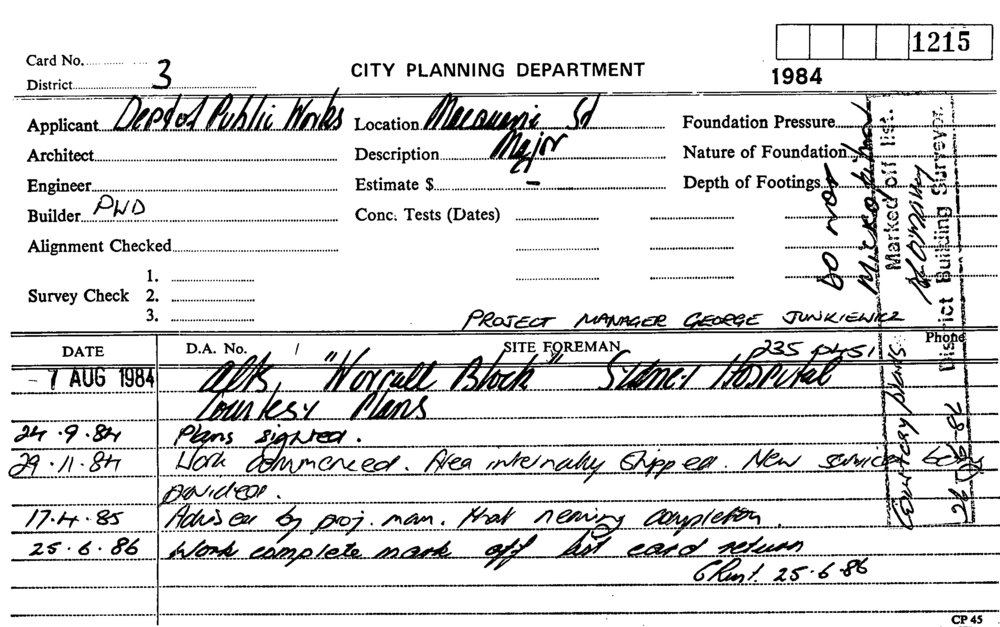 1215
Card No.
District 3
CITY PLANNING DEPARTMENT
1984
Applicant Dept of Public Works
Location Macquarie St
Foundation Pressure
Architect
Description Major
Nature of Foundation
Engineer
Estimate $ -
Depth of Footings
Builder PWD
Conc. Tests (Dates)
Alignment Checked
1.
Survey Check 2.
3.
PROJECT MANAGER GEORGE JUNKIEWICZ
DATE
D.A. No. /
SITE FOREMAN
235
Phone
- 7 AUG 1984
Alts, "Worrall Block" Sydney Hospital
Courtesy Plans
24.9.84 Plans sighted.
29.11.84 Work commenced. Area internally stripped. New services being
provided.
17.4.85 Advised by proj. man. that nearing completion.
25.6.86 Work complete mark off list card return
25.6.86
CP 45
Do not
Microfilm
Marked off list.
District Building Surveyor.
Courtesy plans